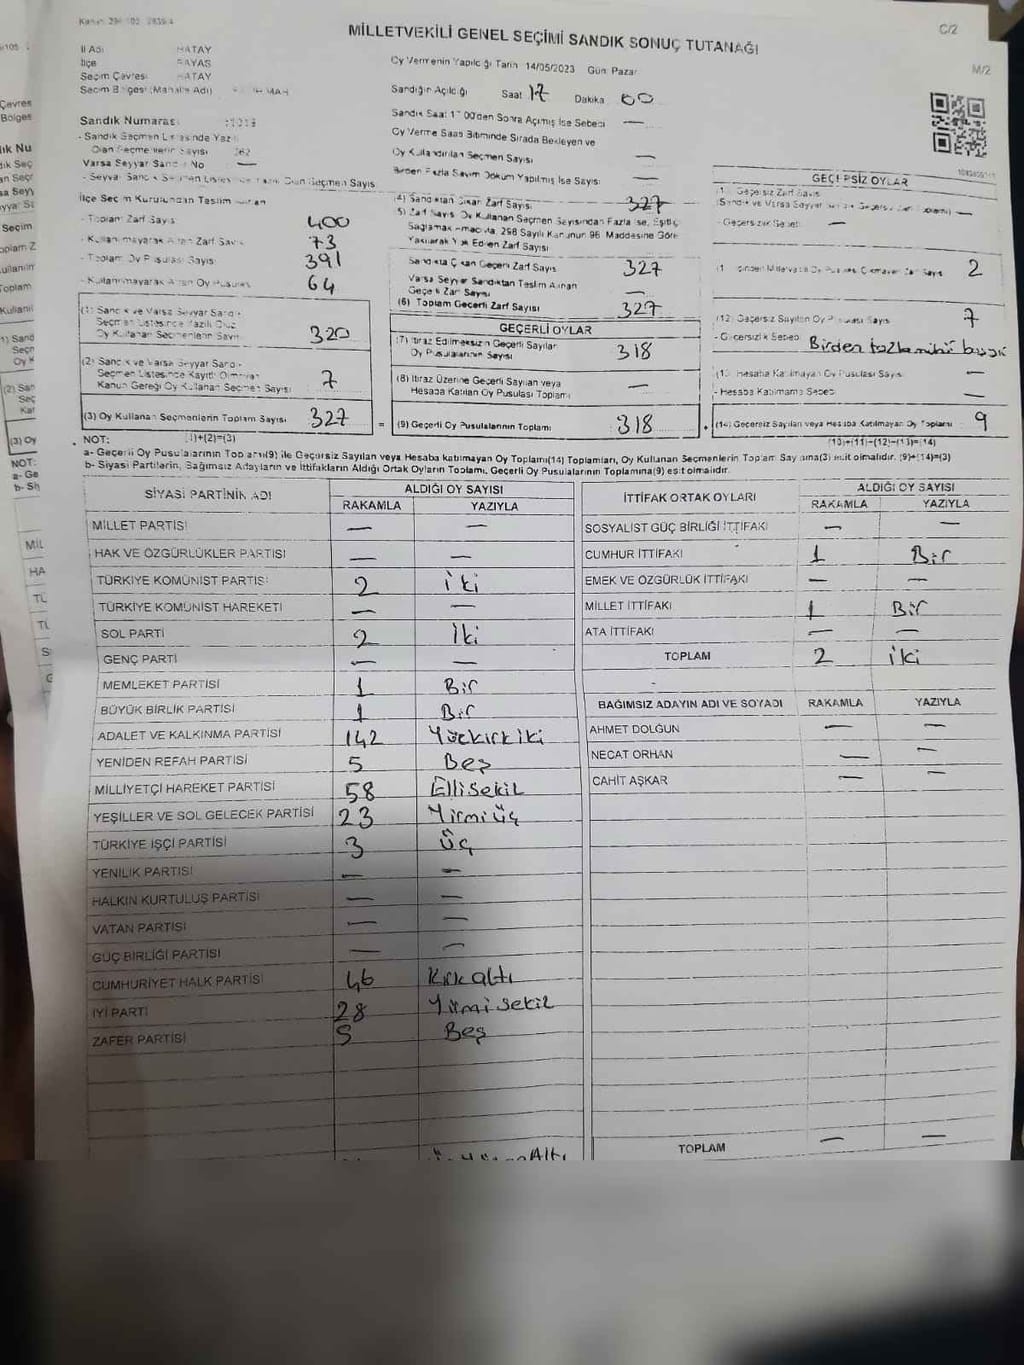 MİLLETVEKİLİ GENEL SEÇİMİ SANDIK SONUÇ TUTANAĞI
C/2
M/2
İl Adı HATAY
İlçe PAYAS
Seçim Çevresi HATAY
Seçim Bölgesi (Mahalle Adı)
Sandık Numarası
- Sandık Seçmen Listesinde Yazılı
Olan Seçmenlerin Sayısı 362
Varsa Seyyar Sandık No —
- Seyyar Sandık Seçmen Listesinde Yazılı Olan Seçmen Sayıs
Oy Vermenin Yapıldığı Tarih 14/05/2023 Gün Pazar
Sandığın Açıldığı Saat 17 Dakika 00
Sandık Saat 17:00'den Sonra Açılmış İse Sebebi —
Oy Verme Saati Bitiminde Sırada Bekleyen ve
Oy Kullandırılan Seçmen Sayısı —
Birden Fazla Sayım Döküm Yapılmış İse Sayısı —
İlçe Seçim Kurulundan Teslim Alınan
- Toplam Zarf Sayısı 400
- Kullanılmayarak Artan Zarf Sayısı 73
- Toplam Oy Pusulası Sayısı 391
- Kullanılmayarak Artan Oy Pusulası 64
(1) Sandık ve Varsa Seyyar Sandık
Seçmen Listesinde Yazılı Olup
Oy Kullanan Seçmenlerin Sayısı 320
(2) Sandık ve Varsa Seyyar Sandık
Seçmen Listesinde Kayıtlı Olmayan
Kanun Gereği Oy Kullanan Seçmen Sayısı 7
(3) Oy Kullanan Seçmenlerin Toplam Sayısı 327
(4) Sandıktan Çıkan Zarf Sayısı 327
5) Zarf Sayısı Oy Kullanan Seçmen Sayısından Fazla ise, Eşitliği
Sağlamak Amacıyla, 298 Sayılı Kanunun 98. Maddesine Göre
Yakılarak Yok Edilen Zarf Sayısı
Sandıkta Çıkan Geçerli Zarf Sayısı 327
Varsa Seyyar Sandıktan Teslim Alınan
Geçerli Zarf Sayısı —
(6) Toplam Geçerli Zarf Sayısı 327
GEÇERLİ OYLAR
(7) İtiraz Edilmeksizin Geçerli Sayılan
Oy Pusulalarının Sayısı 318
(8) İtiraz Üzerine Geçerli Sayılan veya
Hesaba Katılan Oy Pusulası Toplamı —
= (9) Geçerli Oy Pusulalarının Toplamı 318
GEÇERSİZ OYLAR
- Geçersizlik Sebebi —
İçinden Milletvekili Oy Pusulası Çıkmayan Zarf Sayısı 2
(12) Geçersiz Sayılan Oy Pusulası Sayısı 7
- Geçersizlik Sebebi Birden
(13) Hesaba Katılmayan Oy Pusulası Sayısı —
- Hesaba Katılmama Sebebi —
(14) Geçersiz Sayılan veya Hesaba Katılmayan Oy Toplamı 9
NOT: (1)+(2)=(3)
(10)+(11)+(12)+(13)=(14)
a- Geçerli Oy Pusulalarının Toplamı(9) ile Geçersiz Sayılan veya Hesaba katılmayan Oy Toplamı(14) Toplamları, Oy Kullanan Seçmenlerin Toplam Sayısına(3) eşit olmalıdır. (9)+(14)=(3)
b- Siyasi Partilerin, Bağımsız Adayların ve İttifakların Aldığı Ortak Oyların Toplamı, Geçerli Oy Pusulalarının Toplamına(9) eşit olmalıdır.
SİYASİ PARTİNİN ADI ALDIĞI OY SAYISI
RAKAMLA YAZIYLA
MİLLET PARTİSİ — —
HAK VE ÖZGÜRLÜKLER PARTİSİ — —
TÜRKİYE KOMÜNİST PARTİSİ 2 iki
TÜRKİYE KOMÜNİST HAREKETİ — —
SOL PARTİ 2 İki
GENÇ PARTİ — —
MEMLEKET PARTİSİ 1 Bir
BÜYÜK BİRLİK PARTİSİ 1 Bir
ADALET VE KALKINMA PARTİSİ 142 Yüzkırkiki
YENİDEN REFAH PARTİSİ 5 Beş
MİLLİYETÇİ HAREKET PARTİSİ 58 Ellisekiz
YEŞİLLER VE SOL GELECEK PARTİSİ 23 Yirmiüç
TÜRKİYE İŞÇİ PARTİSİ 3 Üç
YENİLİK PARTİSİ — —
HALKIN KURTULUŞ PARTİSİ — —
VATAN PARTİSİ — —
GÜÇ BİRLİĞİ PARTİSİ — —
CUMHURİYET HALK PARTİSİ 46 Kırkaltı
İYİ PARTİ 28 Yirmisekiz
ZAFER PARTİSİ 5 Beş
İTTİFAK ORTAK OYLARI ALDIĞI OY SAYISI
RAKAMLA YAZIYLA
SOSYALİST GÜÇ BİRLİĞİ İTTİFAKI — —
CUMHUR İTTİFAKI 1 Bir
EMEK VE ÖZGÜRLÜK İTTİFAKI — —
MİLLET İTTİFAKI 1 Bir
ATA İTTİFAKI — —
TOPLAM 2 iki
BAĞIMSIZ ADAYIN ADI VE SOYADI RAKAMLA YAZIYLA
AHMET DOLĞUN — —
NECAT ORHAN — —
CAHİT AŞKAR — —
TOPLAM — —